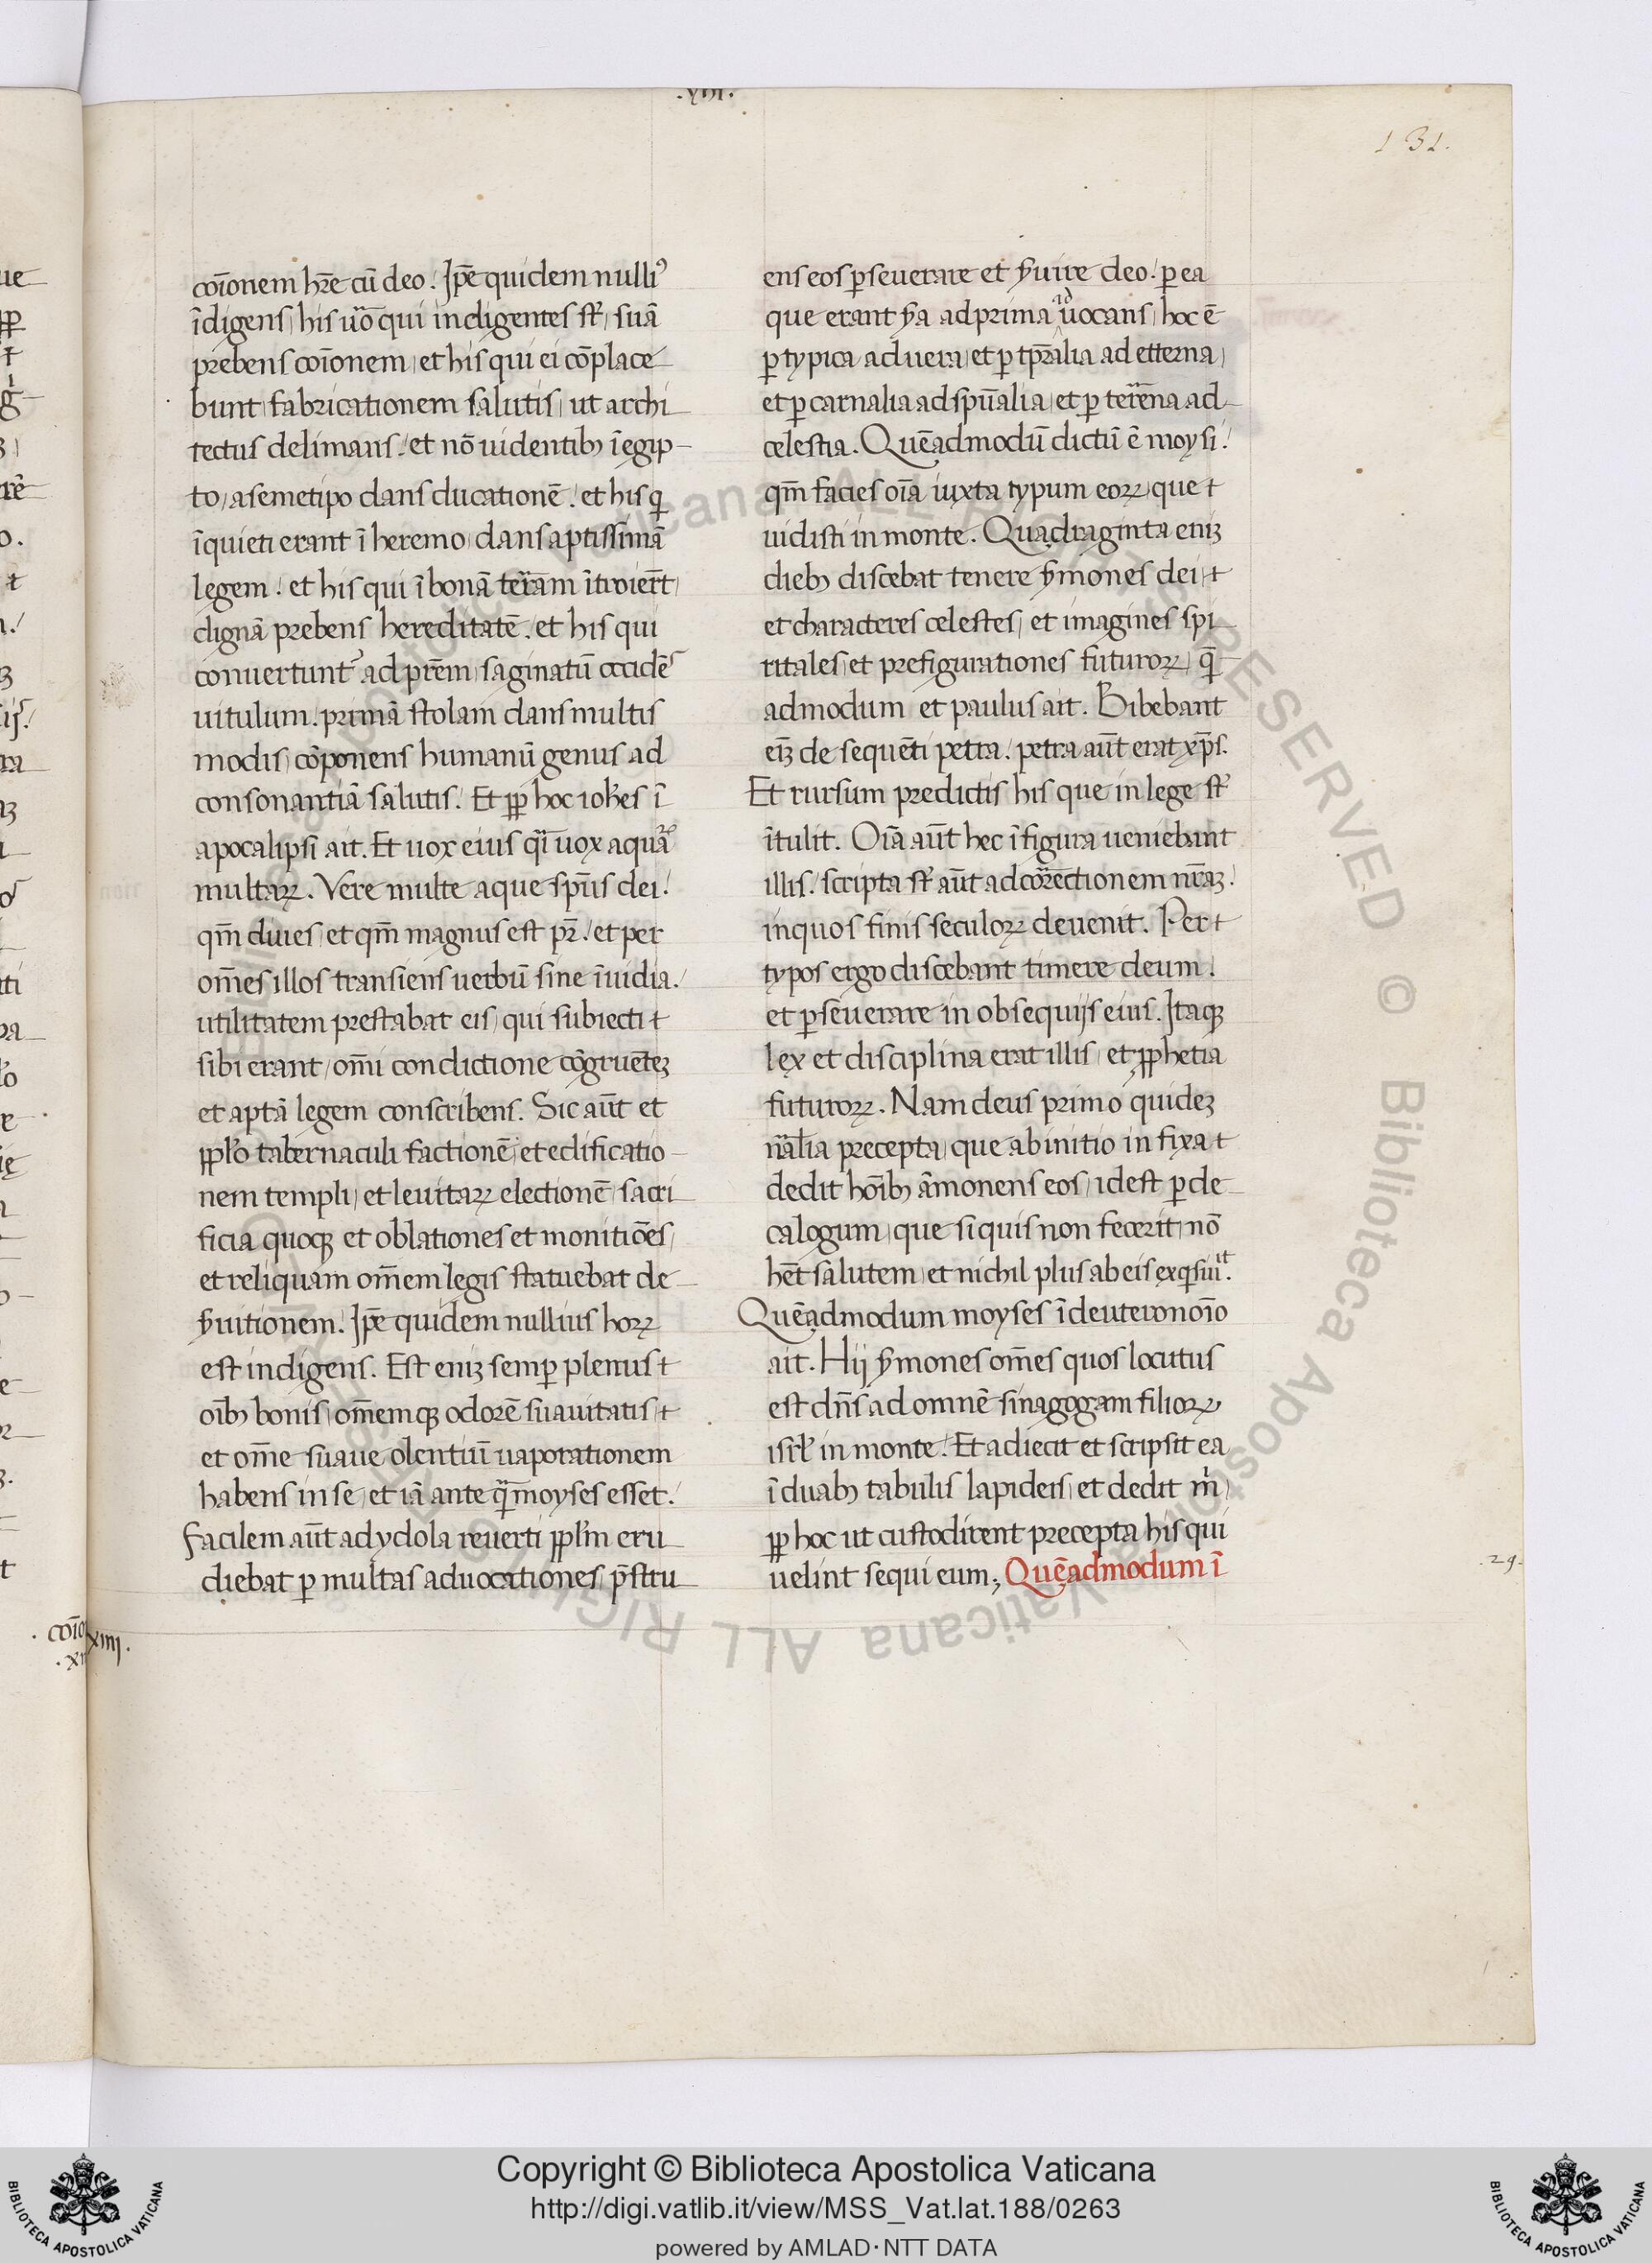 .xiii.
131.
coīonem hr̄e cū deo. Ip̄e quidem nulliꝰ
īdigens, his ūo qui indigentes st̄, suā
prebens coīonem, et his qui ei cōplace
bunt fabricationem salutis, ut archi
tectus delimans. et nō uidentibꝫ ī egip-
to, a semetipo dans ducationē. et his q̄
īquieti erant ī heremo, dans aptissimā
legem. et his qui ī bonā terrā m ītroier̄t,
dignā prebens hereditatē. et his qui
conuertunt᷑ ad pr̄em, saginatū occidēs
uitulum. primā stolam dans multis
modis, cōponens humanū genus ad
consonantiā salutis. Et ꝓp hoc ioh̄es ī
apocalipsi ait. Et uox eius q̄i uox aquaꝝ
multaꝝ. Vere multe aque sp̄us dei.
qm̄ diues, et qm̄ magnus est pr̄. et per
om̄es illos transiens uerbū sine īuidia.
utilitatem prestabat eis, qui subiecti
sibi erant, om̄i condictione cōgruētēꝫ
et aptā legem conscribens. Sic aūt et
ppl̄o tabernaculi factionē, et edificatio-
nem templi, et leuitaꝝ electionē, sacri
ficia quoqꝫ et oblationes et monitiōes,
et reliquam om̄em legis statuebat de
ẜuitionem. Ip̄e quidem nullius hoꝝ
est indigens. Est eniꝫ semꝑ plenus
oībꝫ bonis, om̄emqꝫ odorē suauitatis,
et om̄e suaue olentiū uaporationem
habens in se, et iā ante q̄ moyses esset.
Facilem aūt ad ydola reuerti ppl̄m eru
diebat ꝑ multas aduocationes p̄stru
ens eos ꝑseuerare et ẜuire deo. ꝑ ea
que erant ẜa ad prima uocans, hoc ē
ꝑ typica ad uera, et ꝑ tp̄ralia ad etterna,
et ꝑ carnalia ad spūalia, et ꝑ terrēna ad
celestia. Quēadmodū dictū ē moysi.
qm̄ facies oīa iuxta typum eoꝝ, que
uidisti in monte. Quadraginta eniꝫ
diebꝫ discebat tenere ẜmones dei,
et characteres celestes, et imagines spi
ritales, et prefigurationes futuroꝝ, q̄
admodum et paulus ait. Bibebant
eīꝫ de sequēti petra. petra aūt erat xp̄s.
Et rursum predictis his que in lege st̄
ītulit. Oīa aūt hec ī figura ueniebant
illis. scripta st̄ aūt ad correctionem nr̄aꝫ.
in quos finis seculoꝝ deuenit. Per
typos ergo discebant timere deum.
et ꝑseuerare in obsequijs eius. Itaqꝫ
lex et disciplina erat illis, et ꝓphetia
futuroꝝ. Nam deus primo quideꝫ
nālia precepta, que ab initio infixa
dedit hoībꝫ āmonens eos, id est ꝑ de
calogum, que si quis non fecerit, nō
hēt salutem, et nichil plus ab eis exq̇siuit.
Quēadmodum moyses ī deuteronoīo
ait. Hij ẜmones om̄es quos locutus
est dn̄s ad omnē sinagogam filioꝝ
isrl̄ in monte. Et adiecit et scripsit ea
ī duabꝫ tabulis lapideis, et dedit m̄,
ꝓp hoc ut custodirent precepta his qui
uelint sequi eum; Quēadmodum ī
.29.
.coīo xiiii.
Copyright © Biblioteca Apostolica Vaticana
http://digi.vatlib.it/view/MSS_Vat.lat.188/0263
powered by AMLAD·NTT DATA
BIBLIOTECA APOSTOLICA VATICANA
BIBLIOTECA APOSTOLICA VATICANA